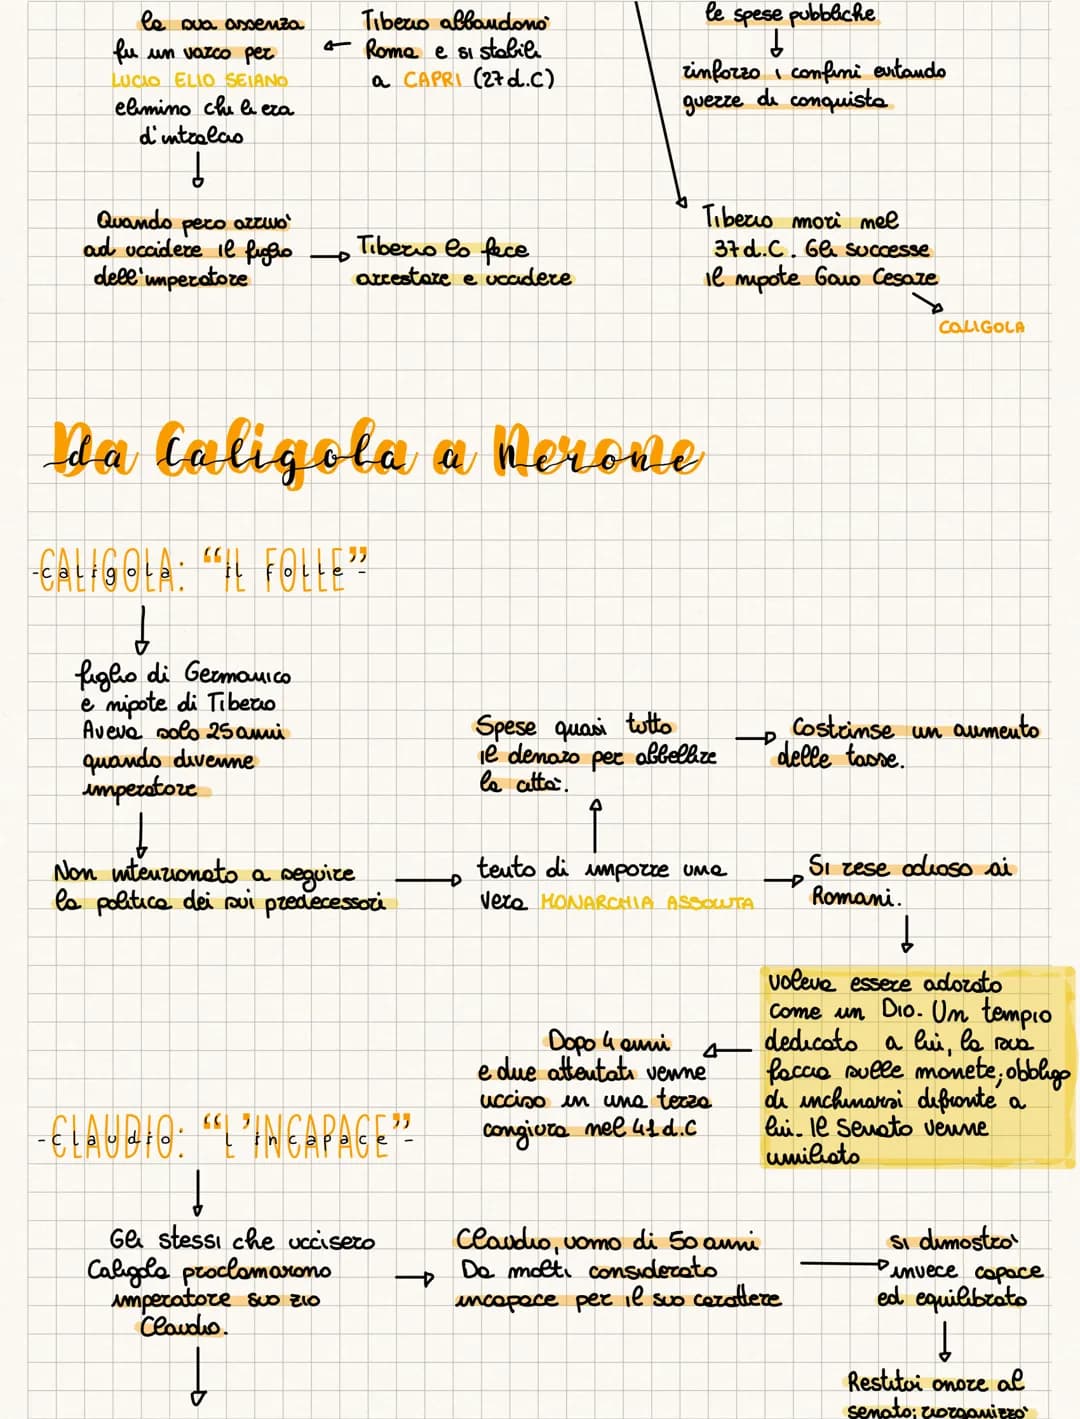 la sua assenza
fu un varco per
LUCIO ELIO SEIANO
elimino chi li era
d'intralcio
Tiberio abbandonò
Roma e si stabilì
a CAPRI (27 d.C)
le spese pubbliche
rinforzo i confini evitando
guerre di conquista
Quando pero arrivo'
ad uccidere il figlio
dell'imperatore
Tiberio lo fece
arrestare e uccidere
Tiberio morì nel
37 d.C. Gli successe
il nipote Gaio Cesare
CALIGOLA
Da Caligola a Nerone
-CALIGOLA: “IL FOLLE”-
figlio di Germanico
e nipote di Tiberio
Aveva solo 25 anni
quando divenne
imperatore
Spese quasi tutto
il denaro per abbellire
la città.
Costrinse un aumento
delle tasse.
Non intenzionato a seguire
la politica dei sui predecessori
tento di imporre una
vera MONARCHIA ASSOLUTA
Si rese odioso ai
Romani.
voleva essere adorato
come un Dio. Un tempio
dedicato a lui, la sua
faccia sulle monete; obbligo
di inchinarsi difronte a
lui. Il Senato venne
umiliato
Dopo 4 anni
e due attentati venne
ucciso in una terza
congiura nel 41 d.C
-CLAUDIO: “L'INCAPACE”-
Gli stessi che uccisero
Caligola proclamarono
imperatore suo zio
Claudio.
Claudio, uomo di 50 anni
Da molti considerato
incapace per il suo carattere
si dimostro'
invece capace
ed equilibrato
Restituì onore al
senato; riorganizzo'